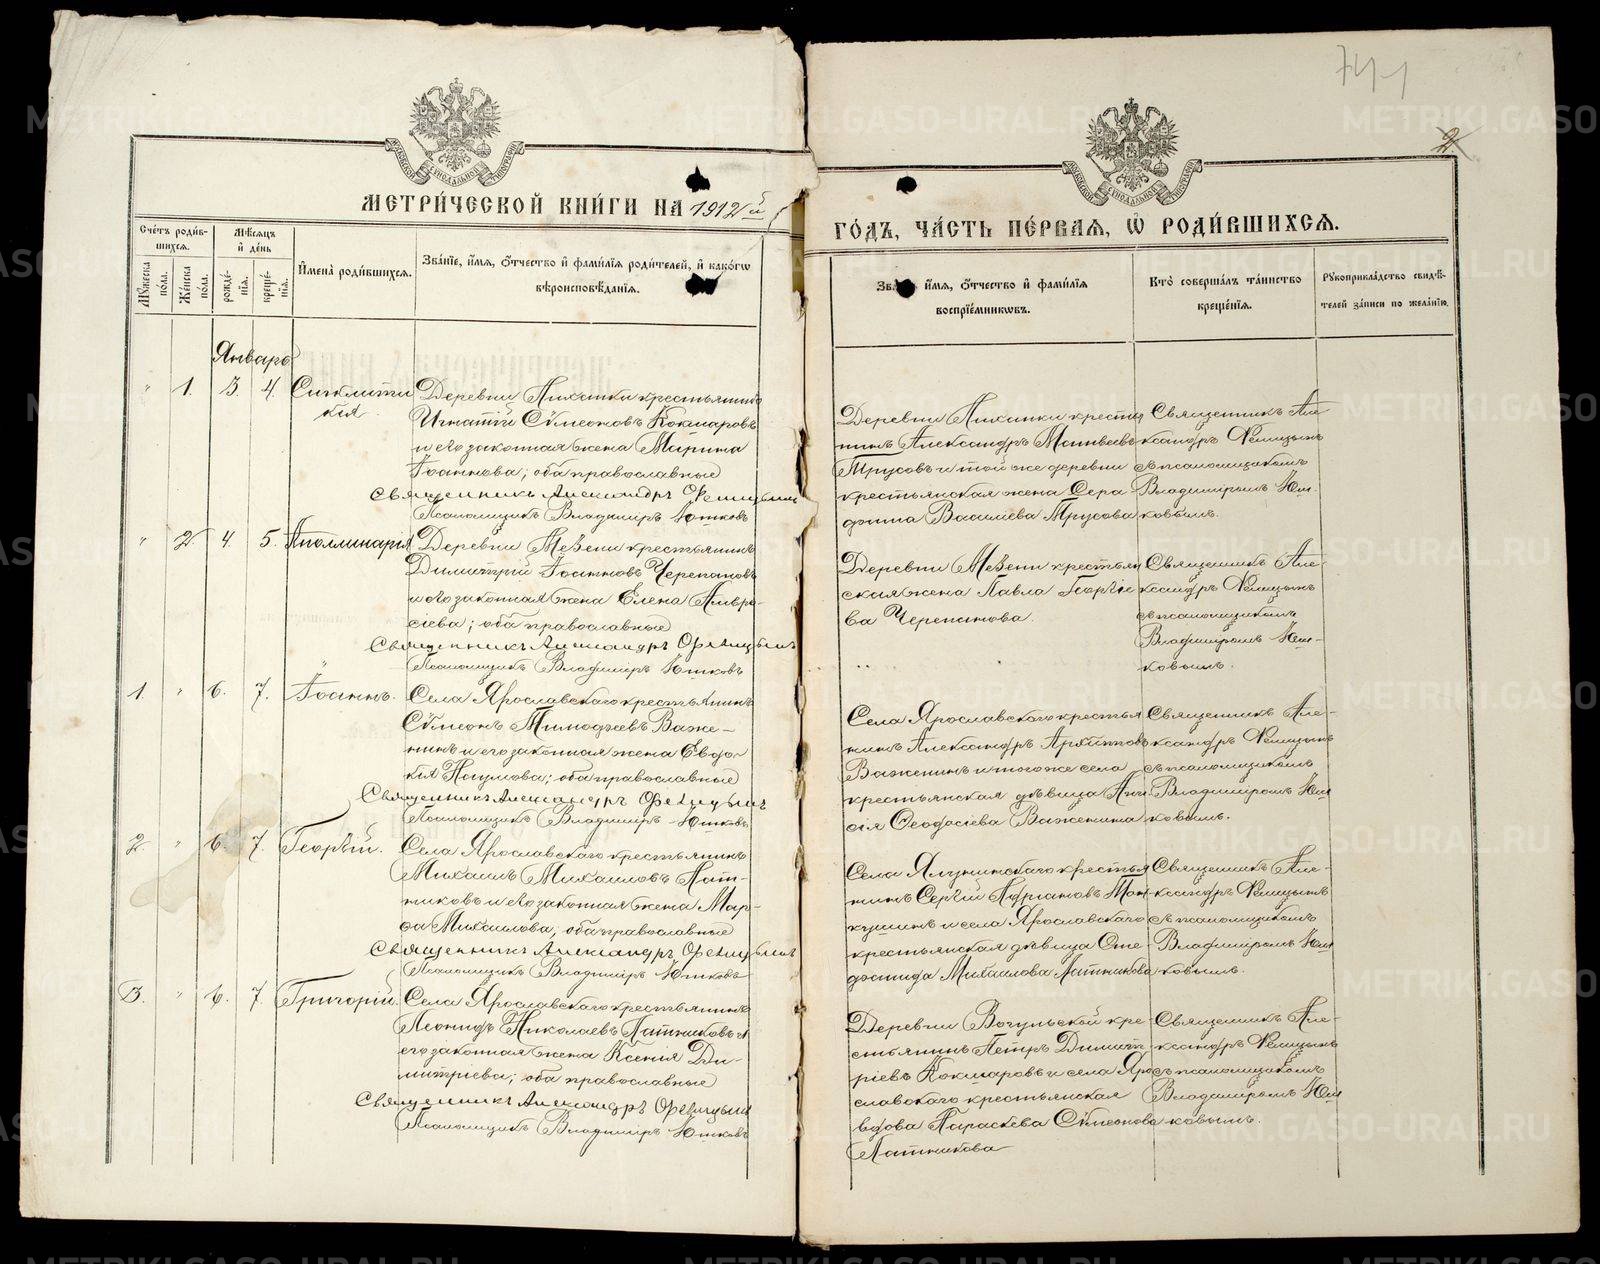 741
2
МЕТРИЧЕСКОЙ КНИГИ НА 1912й
ГОДЪ, ЧАСТЬ ПЕРВАЯ, Ѡ РОДИВШИХСЯ.
Счетъ родившихся.
Мужеска пола.
Женска пола.
Мѣсяцъ и день
рожденія.
крещенія.
Имена родившихся.
Званіе, имя, отчество и фамилія родителей, и какогѡ
вѣроисповѣданія.
Званіе, имя, отчество и фамилія
воспріемникωвъ.
Кто совершалъ таинство
крещенія.
Рукоприкладство свидѣтелей записи по желанію.
Январь
" 1. 3. 4. Синклитикія
Деревни крестьянинъ
Игнатій Сѵмеоновъ Кокшаровъ
и его законная жена Марина
Іоаннова; оба православные
Священникъ Александръ
Псаломщикъ Владиміръ Юшковъ
Деревни крестья
нинъ Александръ Матвеевъ
Трусовъ и той же деревни
крестьянская жена Сера
фима Василіева Трусова
Священникъ Але-
ксандръ
съ псаломщикомъ
Владиміромъ Юш
ковымъ.
" 2. 4. 5. Аполлинарія
Деревни Мезени крестьянинъ
Димитрій Іоанновъ Черепановъ
и его законная жена Елена Амвро-
сіева; оба православные
Священникъ Александръ
Псаломщикъ Владиміръ Юшковъ
Деревни Мезени крестьян
ская жена Павла Георгіе
ва Черепанова.
Священникъ Але-
ксандръ
съ псаломщикомъ
Владиміромъ Юш-
ковымъ.
1. " 6. 7. Іоаннъ.
Села Ярославскаго крестьянинъ
Сѵмеонъ Тимофеевъ Важе-
нинъ и его законная жена Евдо-
кія Наумова; оба православные
Священникъ Александръ
Псаломщикъ Владиміръ Юшковъ
Села Ярославскаго крестья
нинъ Александръ
Важенинъ и того же села
крестьянская дѣвица Ани
сія Ѳеодосіева Важенина
Священникъ Але-
ксандръ
съ псаломщикомъ
Владиміромъ Юш
ковымъ.
2. " 6. 7. Георгій.
Села Ярославскаго крестьянинъ
Михаилъ Михаиловъ Лат-
никовъ и его законная жена Мар-
фа Михаилова; оба православные
Священникъ Александръ
Псаломщикъ Владиміръ Юшковъ
Села Ялунинскаго крестья
нинъ Сергій
и села Ярославскаго
крестьянская дѣвица Сте
фанида Михаилова Латникова
Священникъ Але-
ксандръ
съ псаломщикомъ
Владиміромъ Юш
ковымъ.
3. " 6. 7. Григорій.
Села Ярославскаго крестьянинъ
Леонидъ Николаевъ Латниковъ и
его законная жена Ксенія Ди-
митріева; оба православные
Священникъ Александръ
Псаломщикъ Владиміръ Юшковъ
Деревни Вогульской кре
стьянинъ Петръ Димит
ріевъ Кокшаровъ и села Яро
славскаго крестьянская
вдова Параскева Сѵмеонова
Латникова
Священникъ Але-
ксандръ
съ псаломщикомъ
Владиміромъ Юш
ковымъ.
METRIKI.GASO-URAL.RU